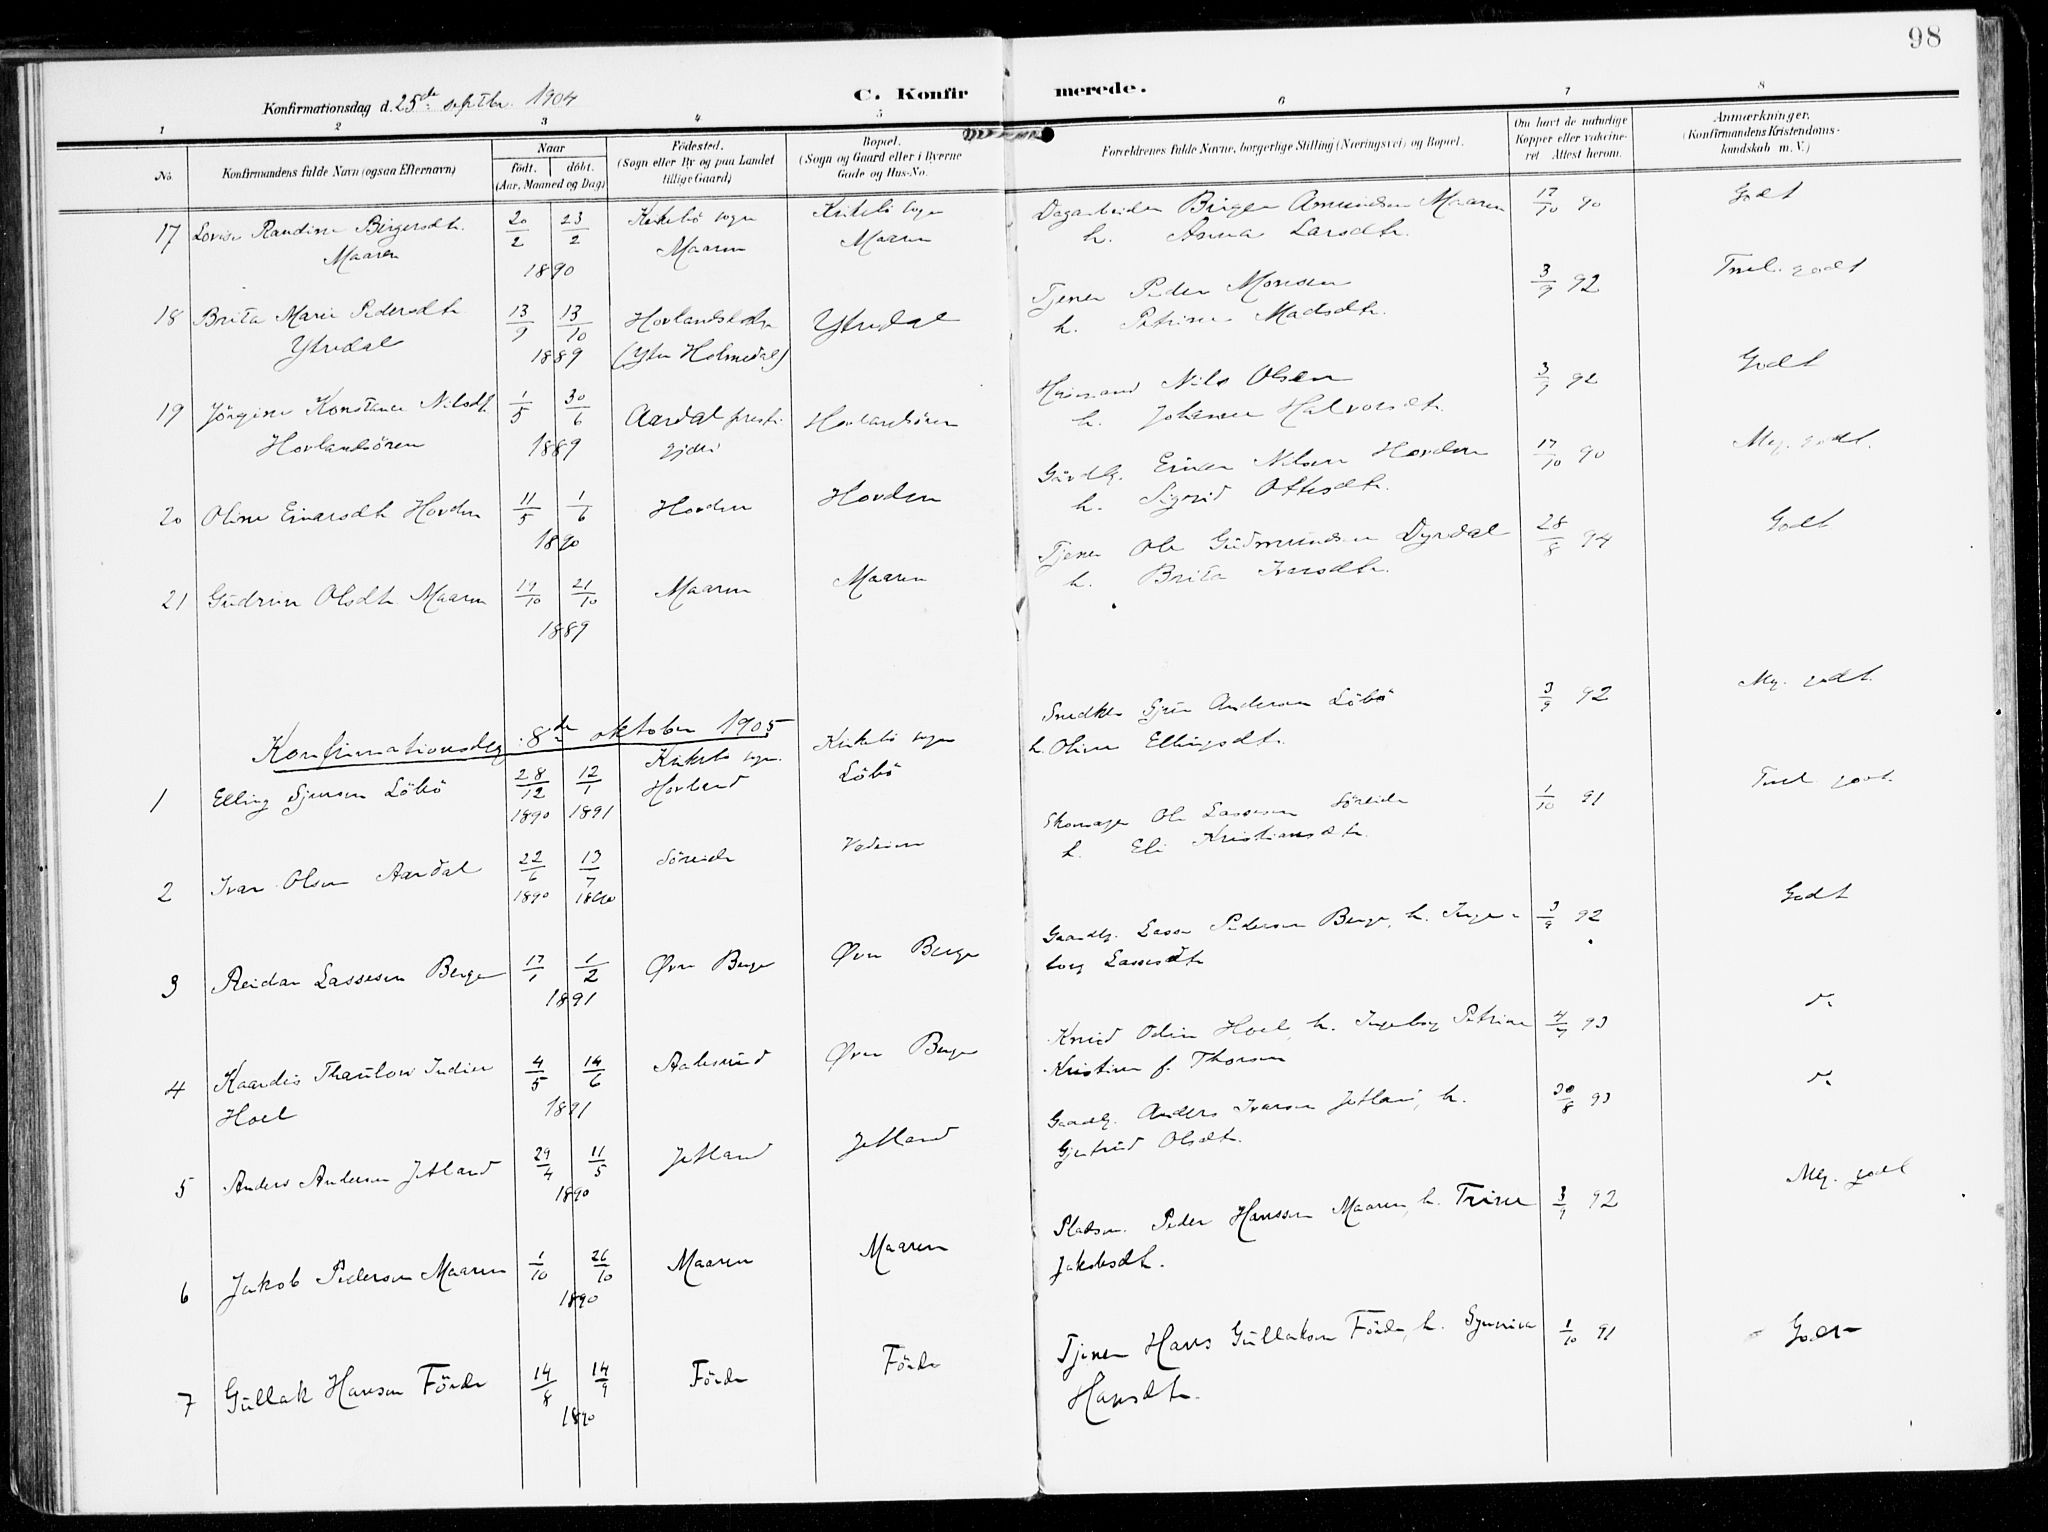 98
Konfirmationsdag d. 25de septbr. 1904
C. Konfirmerede.
1 2 3 4 5 6 7 8
No.
Konfirmandens fulde Navn (ogsaa Efternavn)
Naar
født. døbt.
(Aar, Maaned og Dag)
Fødested.
(Sogn eller By og paa Landet
tillige Gaard)
Bopæl.
(Sogn og Gaard eller i Byerne
Gade og Hus-No.
Forældrenes fulde Navne, borgerlige Stilling (Næringsvei) og Bopæl.
Om havt de naturlige
Kopper eller vakcine-
ret Attest herom.
Anmærkninger.
(Konfirmandens Kristendoms-
kundskab m. V.)
17 Lovise Randine Birgersdtr. 20/2 23/2 Kirkebö sogn Kirkebö sogn Dagarbeider Birger Amundsen Maaren 17/10 90 Godt
Maaren 1890 Maaren Maaren h. Anna Larsdtr.
18 Brita Marie Pedersdtr 13/9 13/10 Ytredal Tjener Peder Monsen 3/9 92 Temel. godt
Ytredal 1889 (Ytre Holmedal) h. Petrine Madsdtr.
19 Jörgine Konstance Nilsdtr. 1/5 30/6 Aardal preste- Hovlandsören Nils Olsen 3/9 92 Godt
Hovlandsören 1889 gjeld h. Johanne Halvorsdtr.
20 Oline Einarsdtr Hovden 11/5 1/6 Hovden Hovden Gårdbr. Einar Nilsen Hovden 17/10 90 Meg. godt.
1890 h. Sigrid Ottesdtr.
21 Gudrun Olsdtr Maaren 19/10 21/10 Maaren Maaren Tjener Ole Gudmundsen Dyrdal 28/8 94 Godt
1889 h. Brita Ivarsdtr.
Konfirmationsdag 8de oktober 1905
1 Elling Sjursen Löbö 28/12 12/1 Kirkebö sogn. Kirkebö sogn Snedker Sjur Andersen Löbö 3/9 92 Meg. godt.
1890 1891 Hovland Löbö h. Oline Ellingsdtr.
2 Ivar Olsen Aardal 22/6 13/7 Söreide Vadeim Skomager Ole Lassesen Söreide 1/10 91 Temel. godt.
1890 1890 h. Eli Kristiansdtr.
3 Reidar Lassesen Berge 17/1 1/2 Øvre Berge Øvre Berge Gaardbr. Lasse Pedersen Berge, h. Inge- 3/9 92 Godt
1891 borg Lassesdtr
4 Kaardis Thaulow Indier 4/5 14/6 Aalesund Øvre Berge Knud Odin Hoel, h. Ingeborg Petrine 4/9 93 do
Hoel 1891 Kristine f. Thorsen
5 Anders Andersen Jetland 29/4 11/5 Jetland Jetland Gaardbr. Anders Ivarsen Jetland, h. 30/8 93 do
1890 Gjertrud Olsdtr.
6 Jakob Pedersen Maaren 1/10 26/10 Maaren Maaren Pladsm. Peder Hanssen Maaren, h. Trine 3/9 92 Meg. godt
1890 Jakobsdtr.
7 Gullak Hansen Förde 14/8 14/9 Förde Förde Tjener Hans Gullaksen Förde, h. Synneva 1/10 91 Godt
1890 Hansdtr.